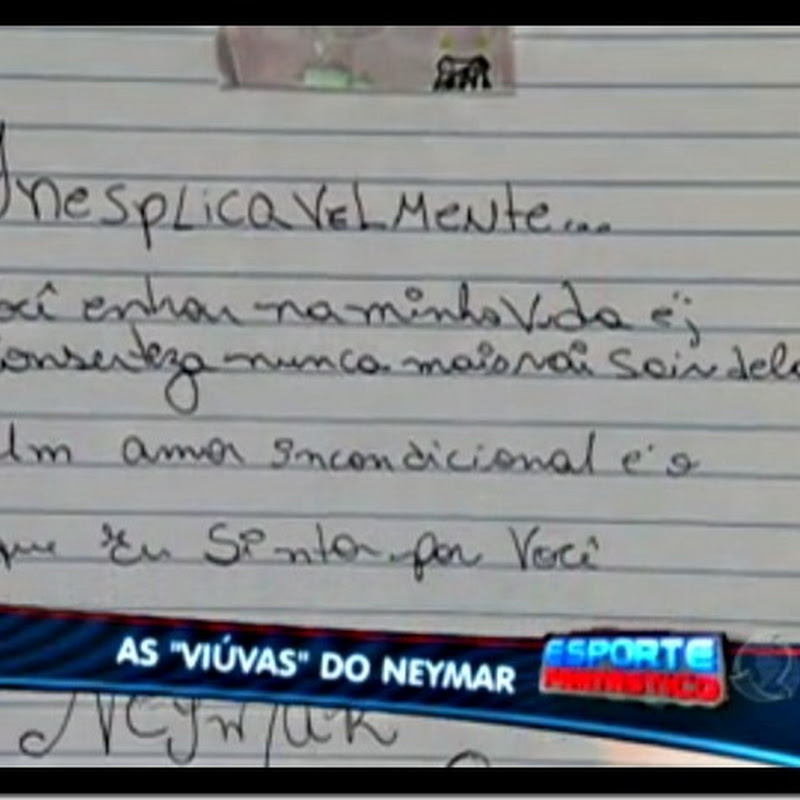 Inesplicavelmente...
ocê entrou na minha vida e;
conserteza nunca mais vai sair dela
Um amor incondicional é o
que Eu Sinto por Você
AS "VIÚVAS" DO NEYMAR
ESPORTE
FANTÁSTICO
Neymar